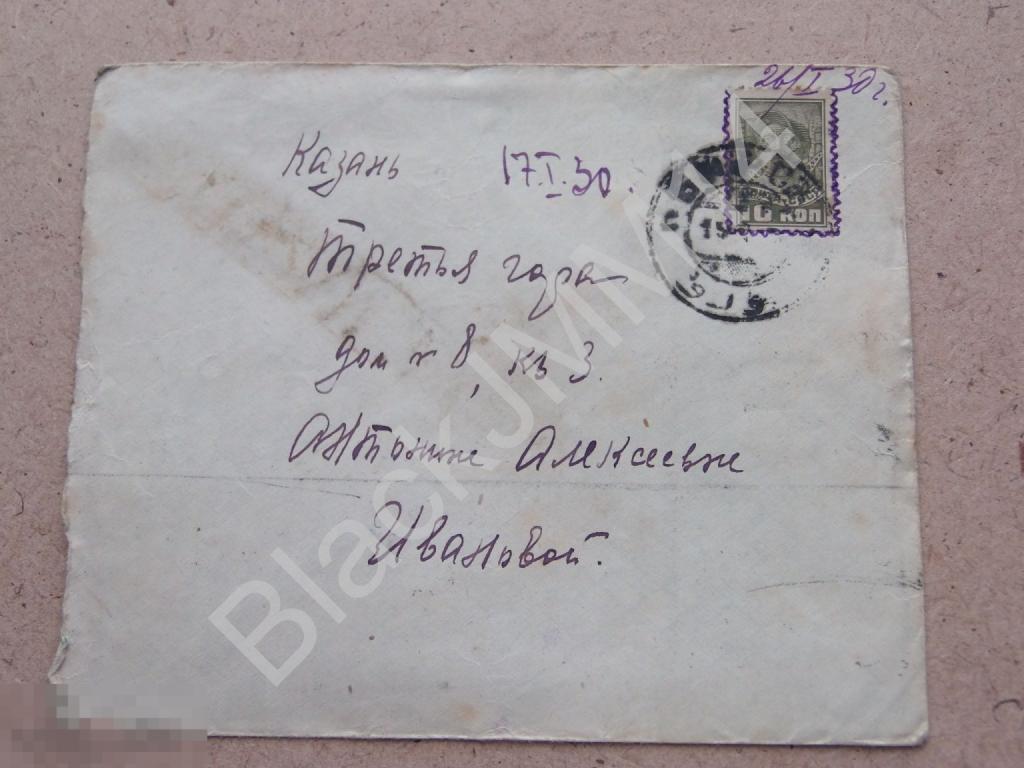 26/I 30 г.
Казань 17.I.30.
10 КОП
19
Третья гора
дом № 8, кв 3.
Антонине Алексеевне
Ивановой.
BlackJMM44